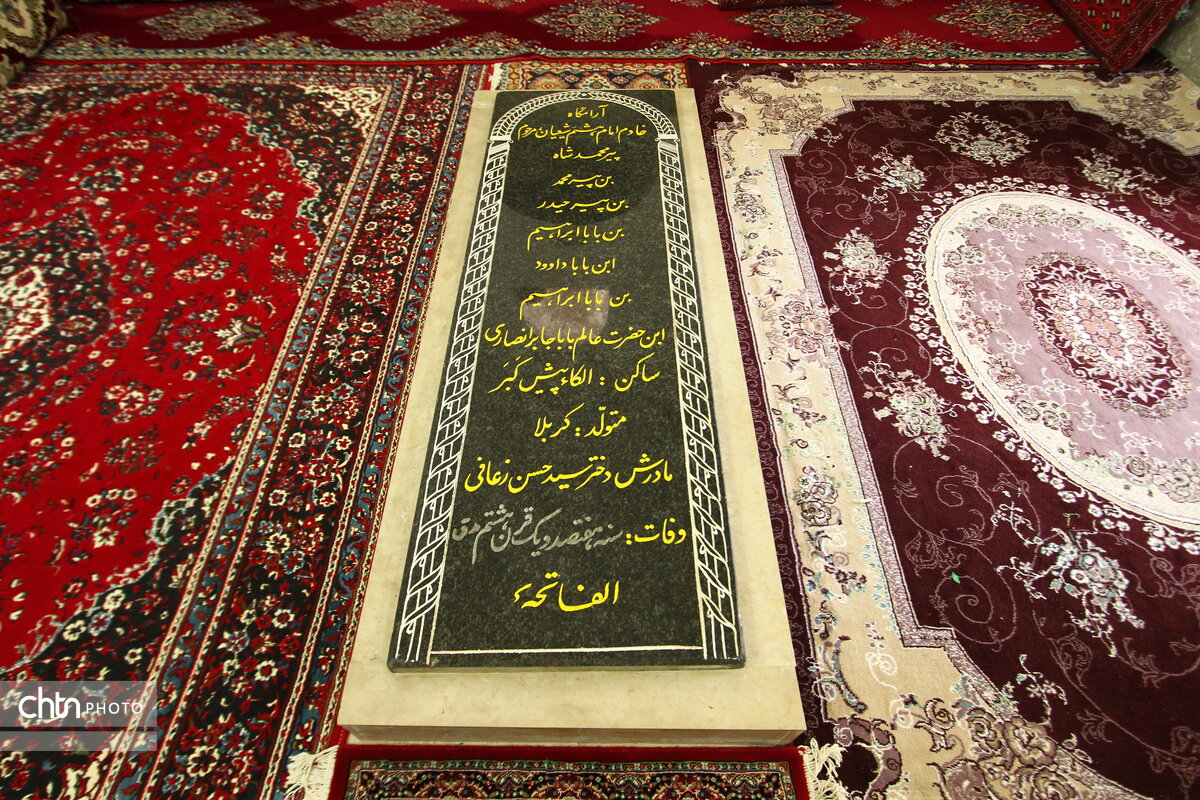 آرامگاه
خادم امام هشتم شیعیان مرحوم
پیر محمد شاه
بن پیر محمد
بن پیر حیدر
بن بابا ابراهیم
ابن بابا داوود
بن بابا ابراهیم
ابن حضرت عالم بابا جابر انصاری
ساکن : الکاء پیش کَبَر
متولّد : کربلا
مادرش دختر سید حسن زعافی
وفات : سنه هفتصد و یک قرن هشتم ه‍ ق
الفاتحهء
chtn PHOTO